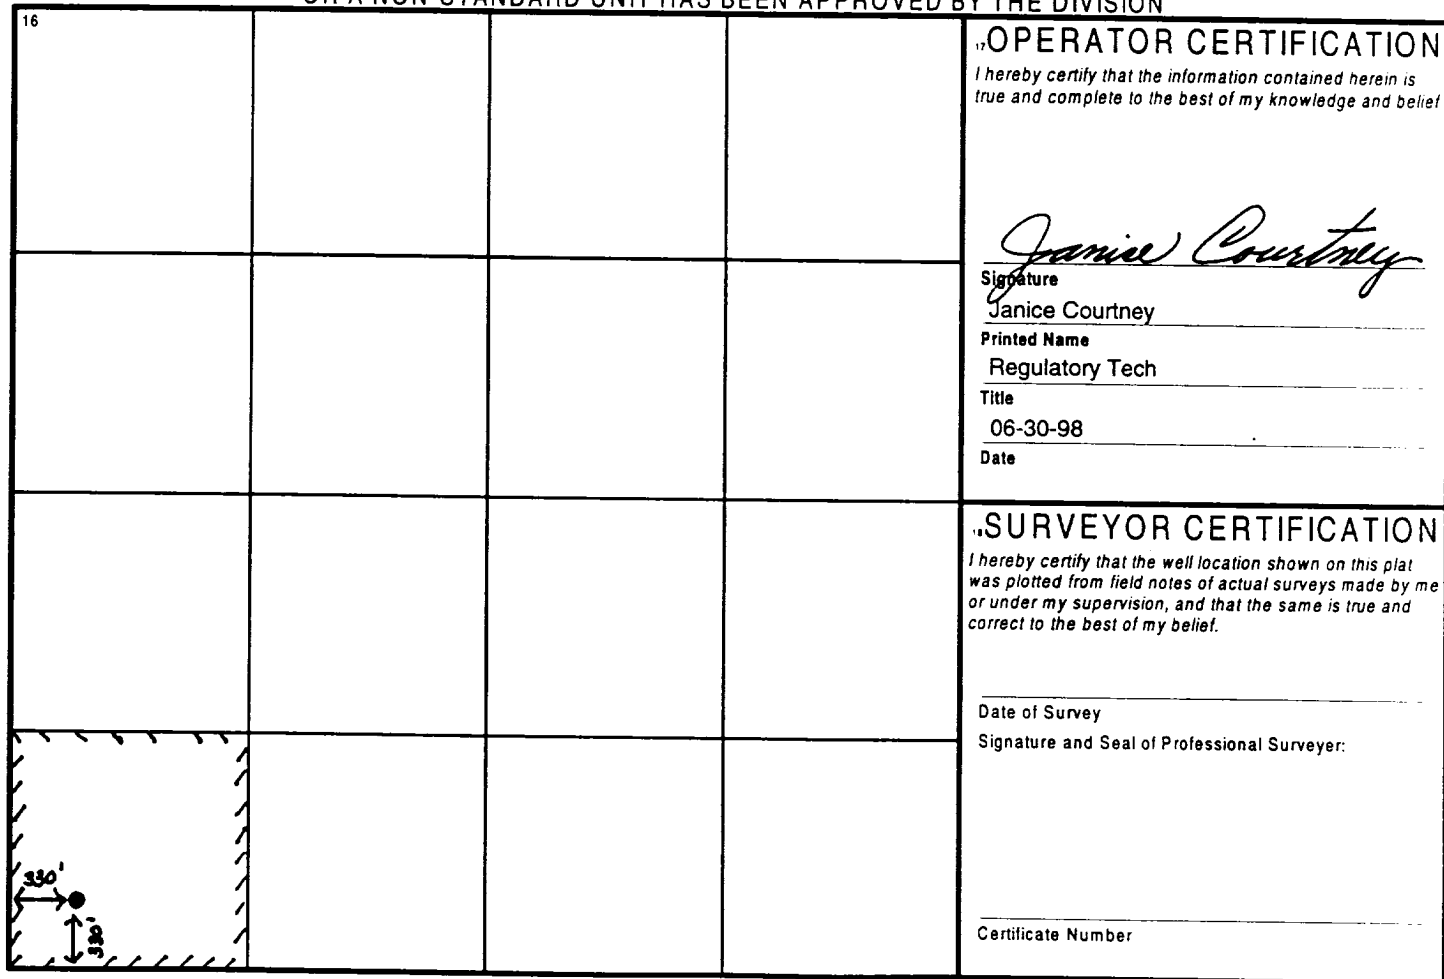 OR A NON-STANDARD UNIT HAS BEEN APPROVED BY THE DIVISION
16
17 OPERATOR CERTIFICATION
I hereby certify that the information contained herein is
true and complete to the best of my knowledge and belief
Janice Courtney
Signature
Janice Courtney
Printed Name
Regulatory Tech
Title
06-30-98
Date
18 SURVEYOR CERTIFICATION
I hereby certify that the well location shown on this plat
was plotted from field notes of actual surveys made by me
or under my supervision, and that the same is true and
correct to the best of my belief.
Date of Survey
Signature and Seal of Professional Surveyer:
Certificate Number
330'
330'